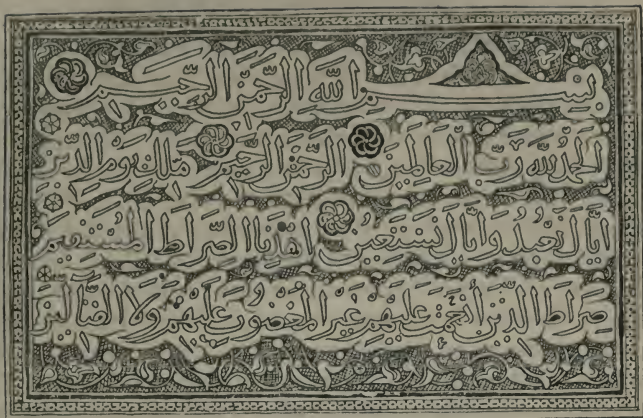 بسم الله الرحمن الرحيم
الحمد لله رب العالمين الرحمن الرحيم ملك يوم الدين
اياك نعبد واياك نستعين اهدنا الصراط المستقيم
صراط الذين أنعمت عليهم غير المغضوب عليهم ولا الضالين